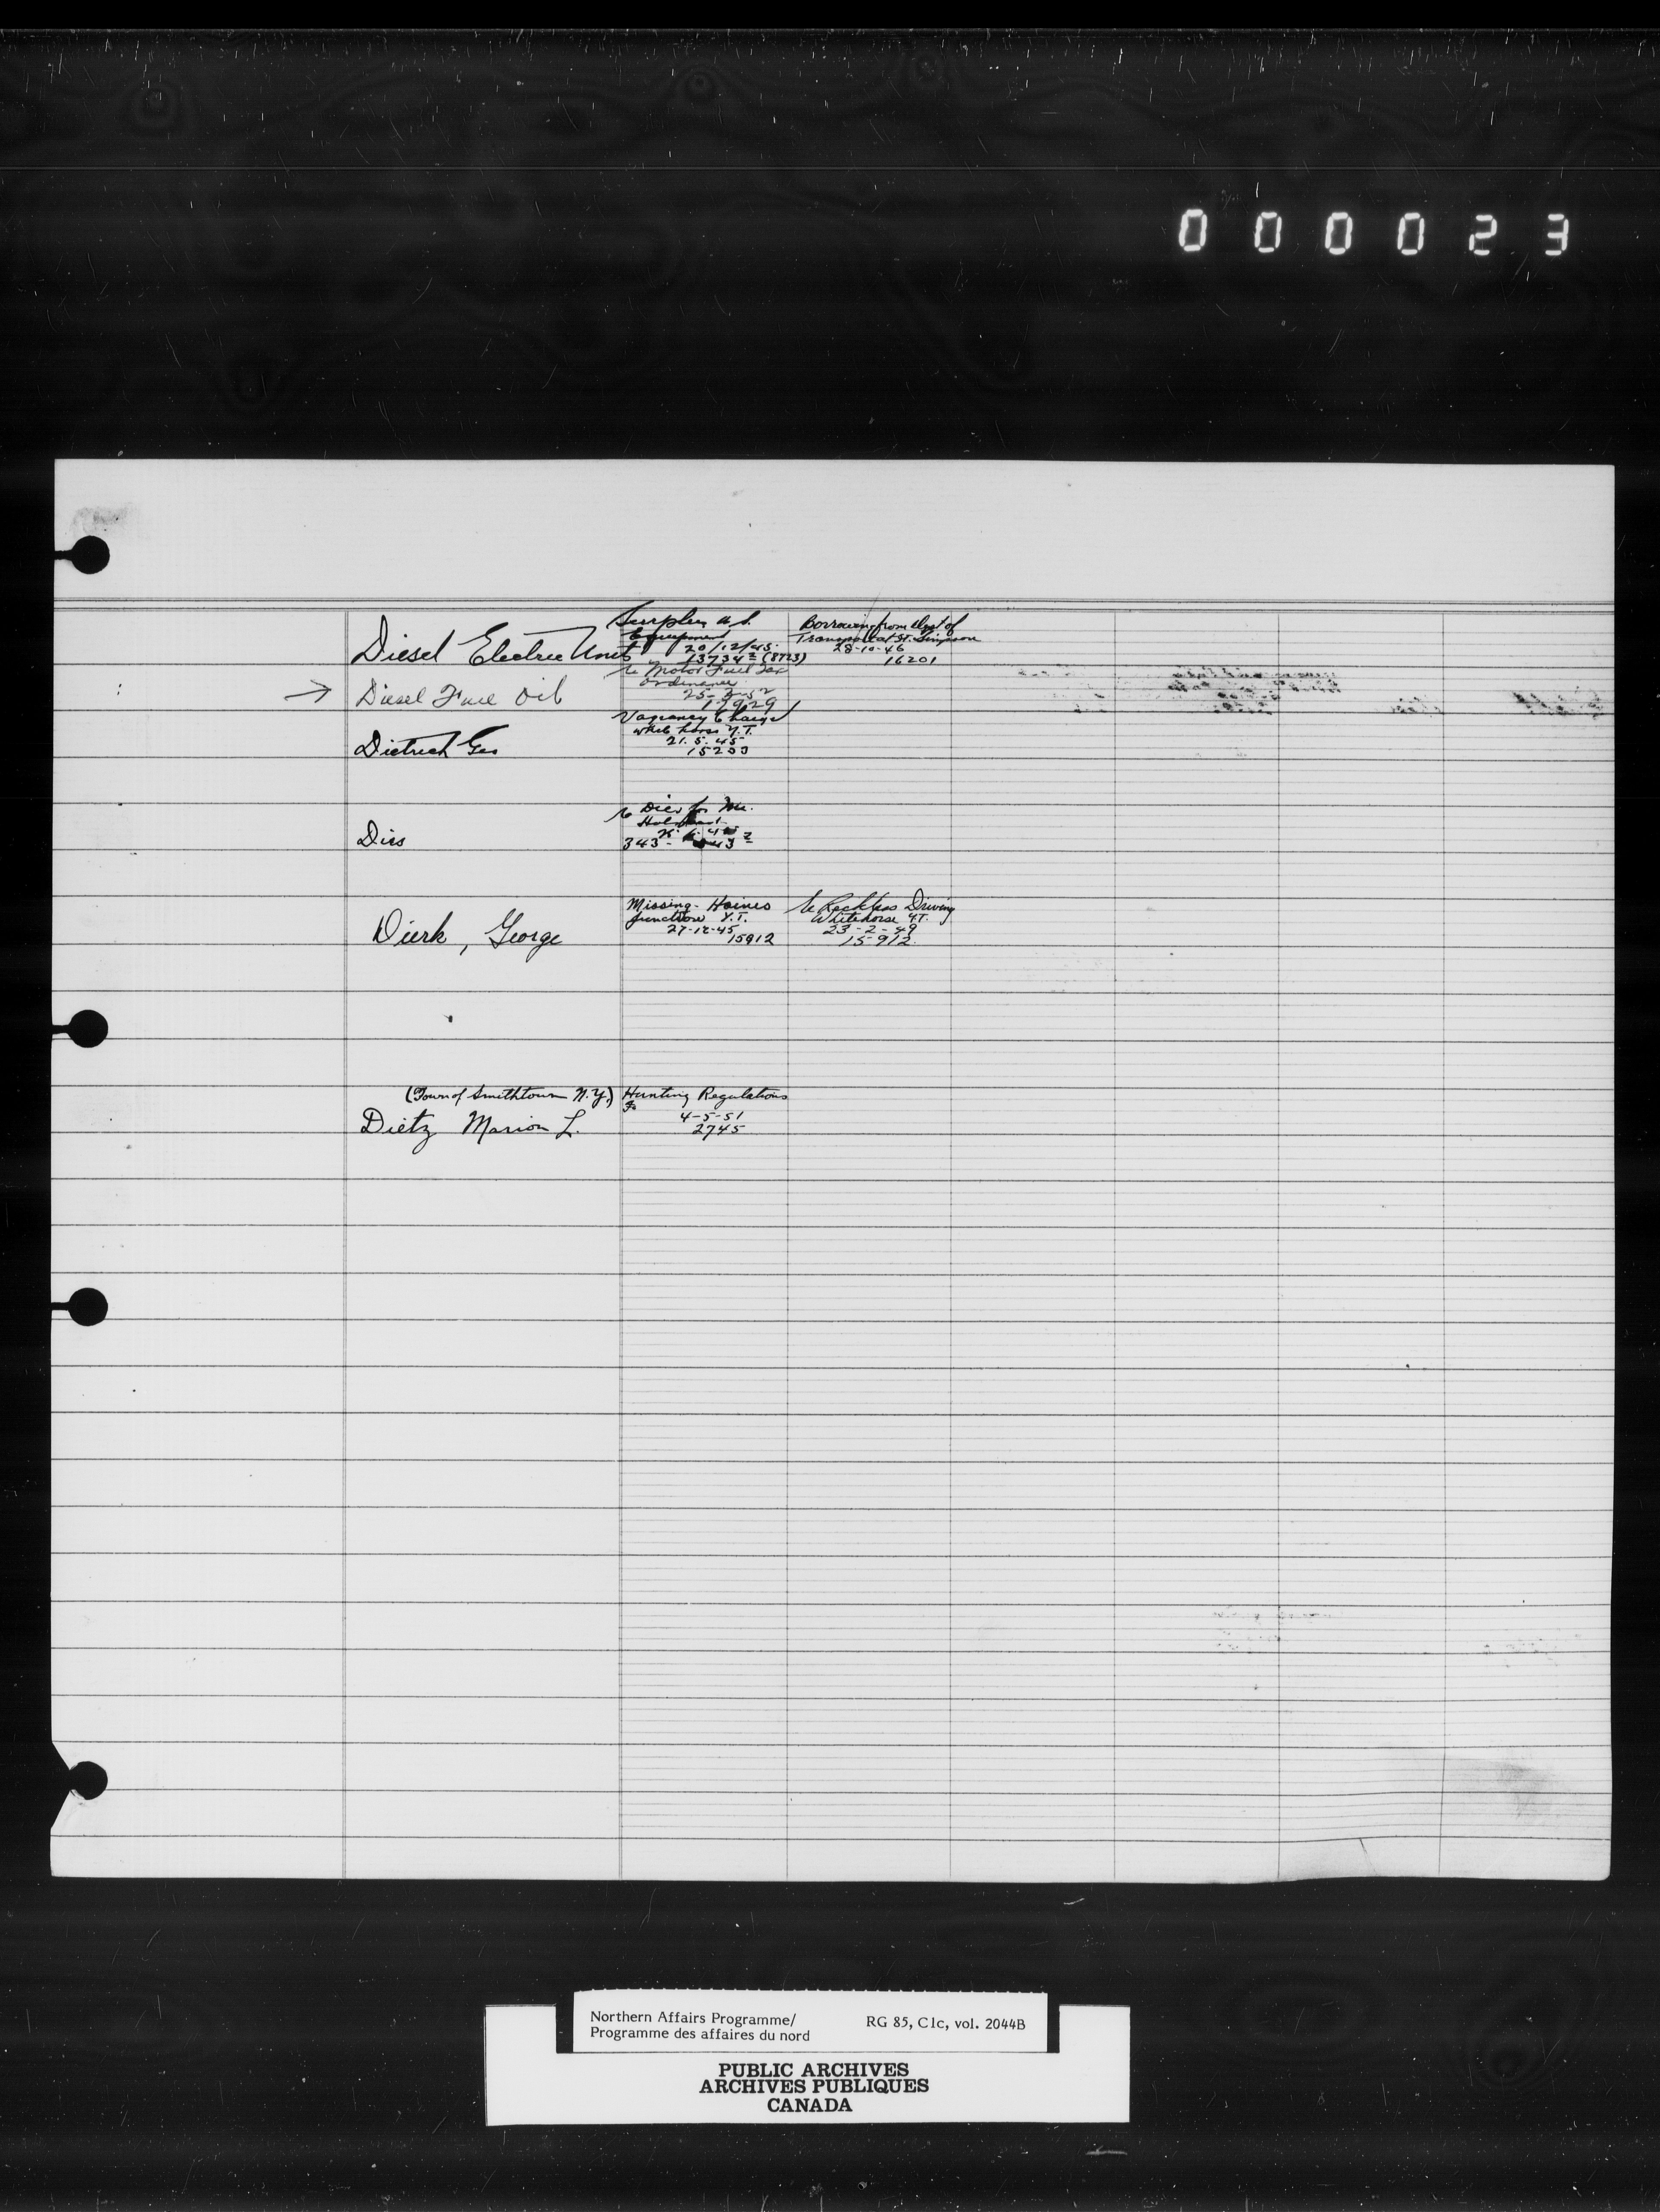 000023
Diesel Electric Unit
Surplus U.S.
Equipment
20/12/45
13734² (8723)
Borrowing from Dept of
Transport at St. Simpson
28-10-46
16201
→ Diesel Fuel Oil
re Motor Fuel Tax
Ordinance
17929
Dietrich Geo
Vagrancy Charge
White horse Y.T.
21.5.45
Dies
re Dies for Mr.
343-
Dierk, George
Missing - Haines
Junction Y.T.
27-12-45
15912
re Reckless Driving
Whitehorse Y.T.
23-2-49
15-912
(Town of Smithtown N.Y.)
Dietz Marion L.
Hunting Regulations
4-5-51
2745
Northern Affairs Programme/
Programme des affaires du nord
RG 85, C1c, vol. 2044B
PUBLIC ARCHIVES
ARCHIVES PUBLIQUES
CANADA